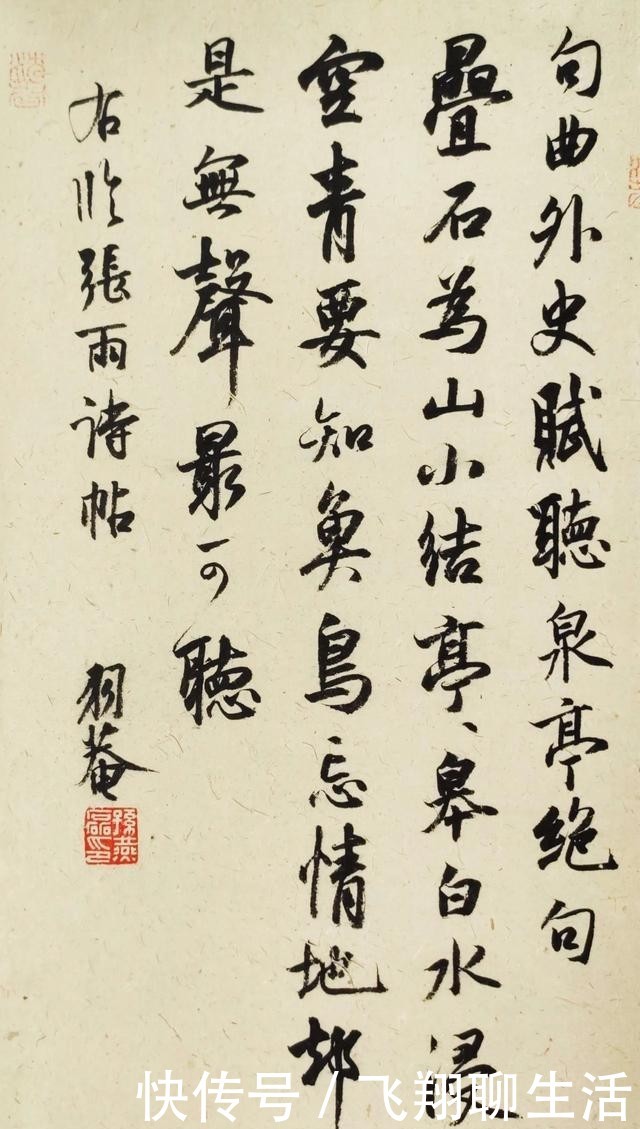 句曲外史賦聽泉亭絕句
疊石為山小結亭、皋白水浸
空青要知魚鳥忘情地却
是無聲最可聽
右臨張雨詩帖
菴
快传号 / 飞翔聊生活